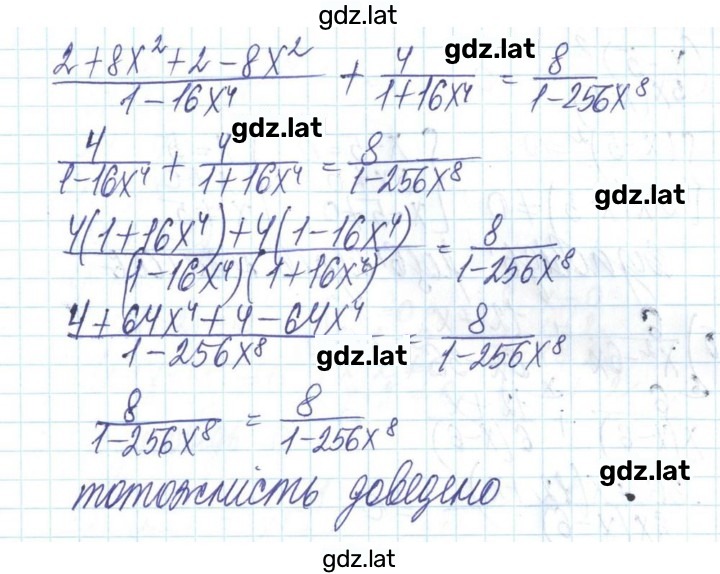 gdz.lat
(2+8x²+2-8x²)/(1-16x⁴) + 4/(1+16x⁴) = 8/(1-256x⁸)
gdz.lat
4/(1-16x⁴) + 4/(1+16x⁴) = 8/(1-256x⁸)
gdz.lat
gdz.lat
(4(1+16x⁴)+4(1-16x⁴))/((1-16x⁴)(1+16x⁴)) = 8/(1-256x⁸)
(4+64x⁴+4-64x⁴)/(1-256x⁸) = 8/(1-256x⁸)
gdz.lat
8/(1-256x⁸) = 8/(1-256x⁸)
gdz.lat
тотожність доведено
gdz.lat